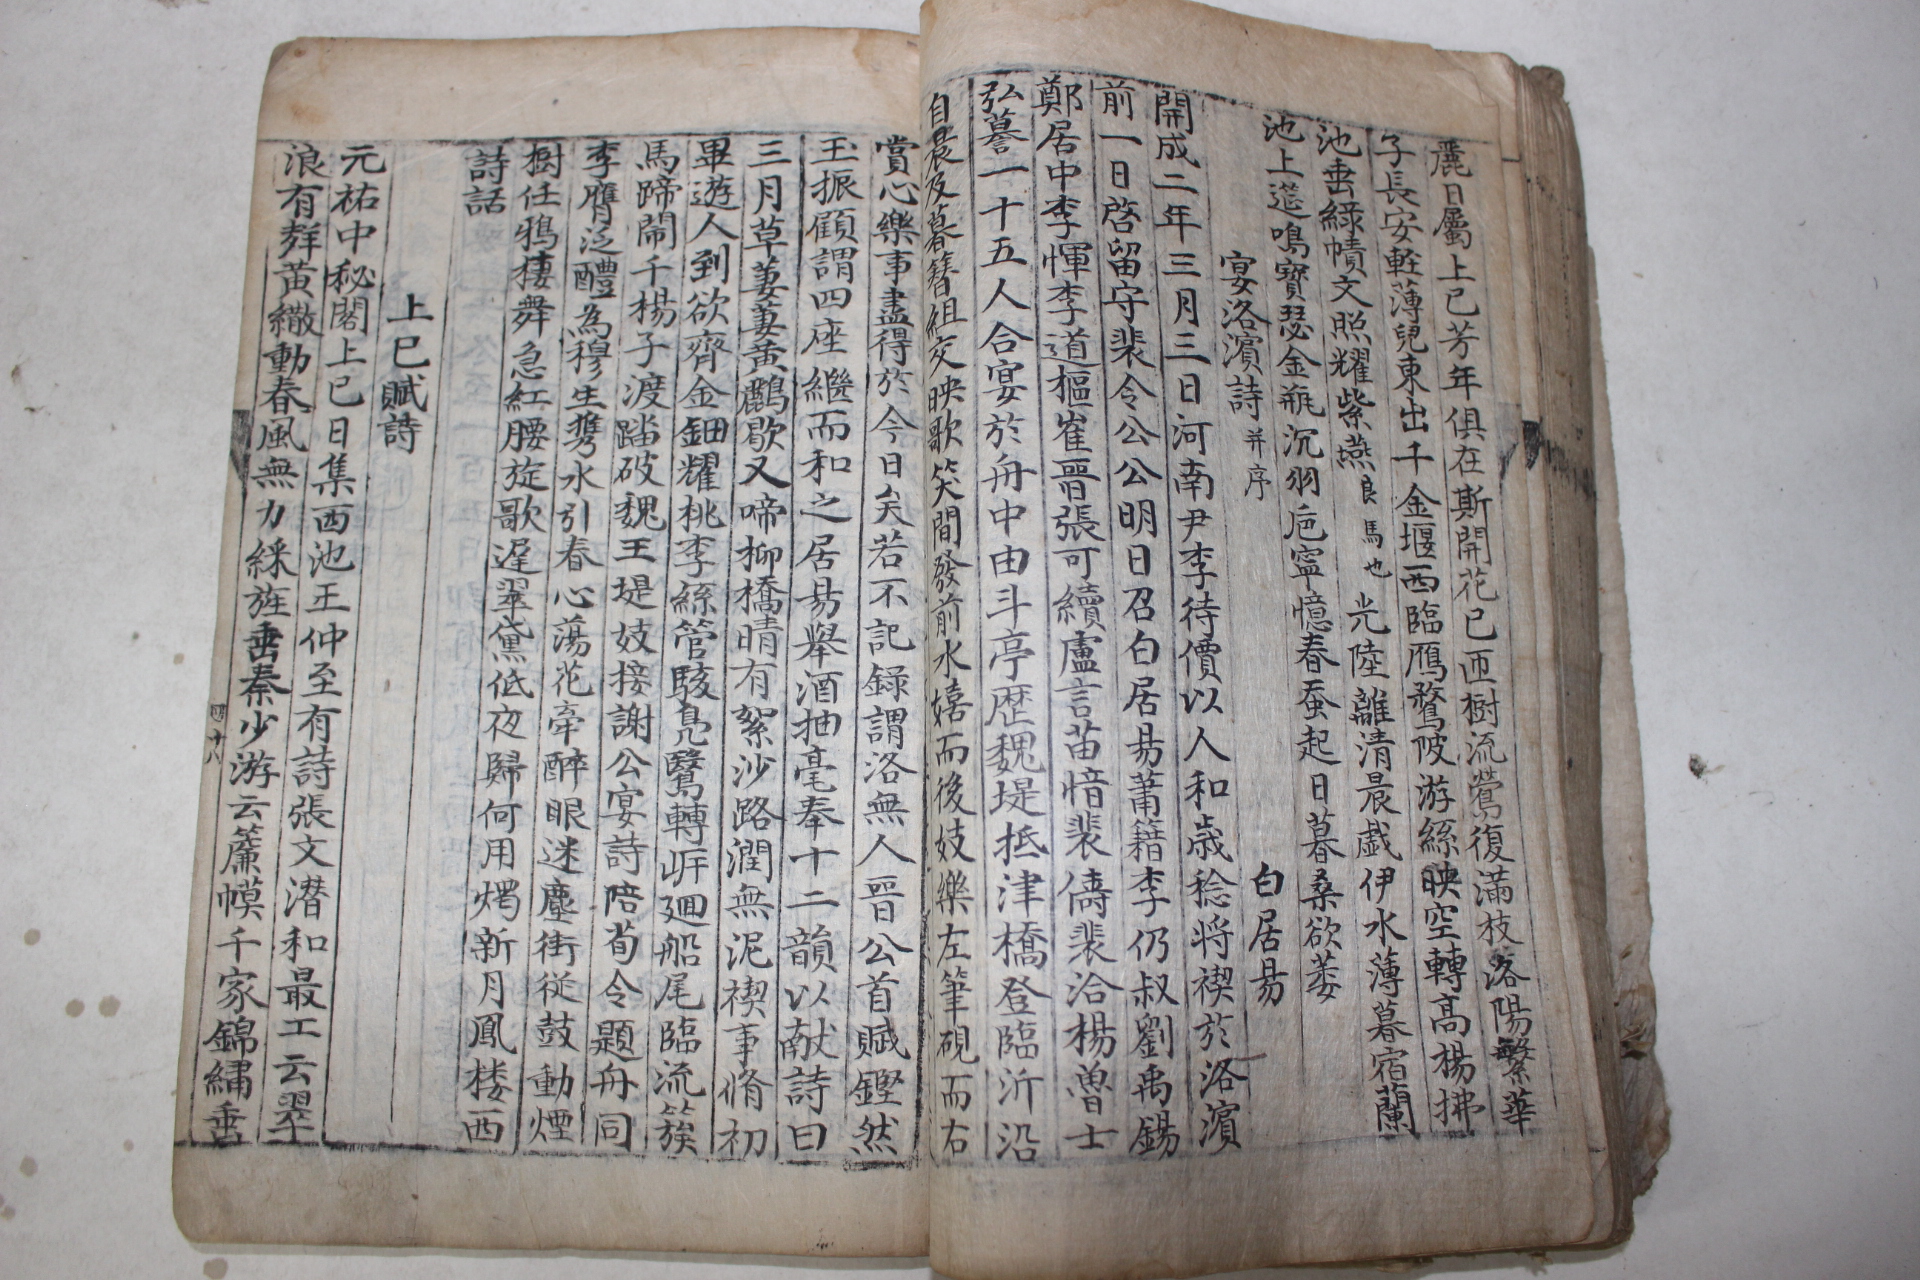 麗日屬上巳芳年俱在斯開花已匝樹流鶯復滿枝洛陽繁華
子長安輕薄兒東出千金堰西臨鴈鶩陂游絲映空轉高楊拂
池垂綠幘文照耀紫燕良馬也光陸離清晨戯伊水薄暮宿蘭
池上筵鳴寶瑟金瓶沉羽卮寧憶春蚕起日暮桑欲萎
宴洛濱詩并序 白居易
開成二年三月三日河南尹李待價以人和歲稔將禊於洛濱
前一日啓留守裴令公公明日召白居易蕭籍李仍叔劉禹錫
鄭居中李惲李道樞崔晋張可續盧言苗愔裴儔裴洽楊魯士
弘䓁一十五人合宴於舟中由斗亭歷魏堤抵津橋登臨沂沿
自晨及暮簪組交映歌笑間發前水嬉而後妓樂左筆硯而右
賞心樂事盡得於今日矣若不記録謂洛無人晋公首賦鏗然
玉振顧謂四座繼而和之居昜舉酒抽毫奉十二韻以献詩曰
三月草萋萋黄鸝歇又啼柳橋晴有絮沙路潤無泥禊事脩初
畢遊人到欲齊金鈿耀桃李絲管駭鳧鷖轉岸廻船尾臨流簇
馬蹄閙千楊子渡踏破魏王堤妓接謝公宴詩陪荀令題舟同
李膺泛醴為穆生携水引春心蕩花牽醉眼迷塵街從鼓動煙
樹任鴉棲舞急紅腰旋歌遲翠黛低夜歸何用燭新月鳳楼西
詩話
上巳賦詩
元祐中秘閣上巳日集西池王仲至有詩張文潛和最工云翠
浪有群黄繖動春風無力綵旌垂秦少游云簾幙千家錦繡垂
四十八